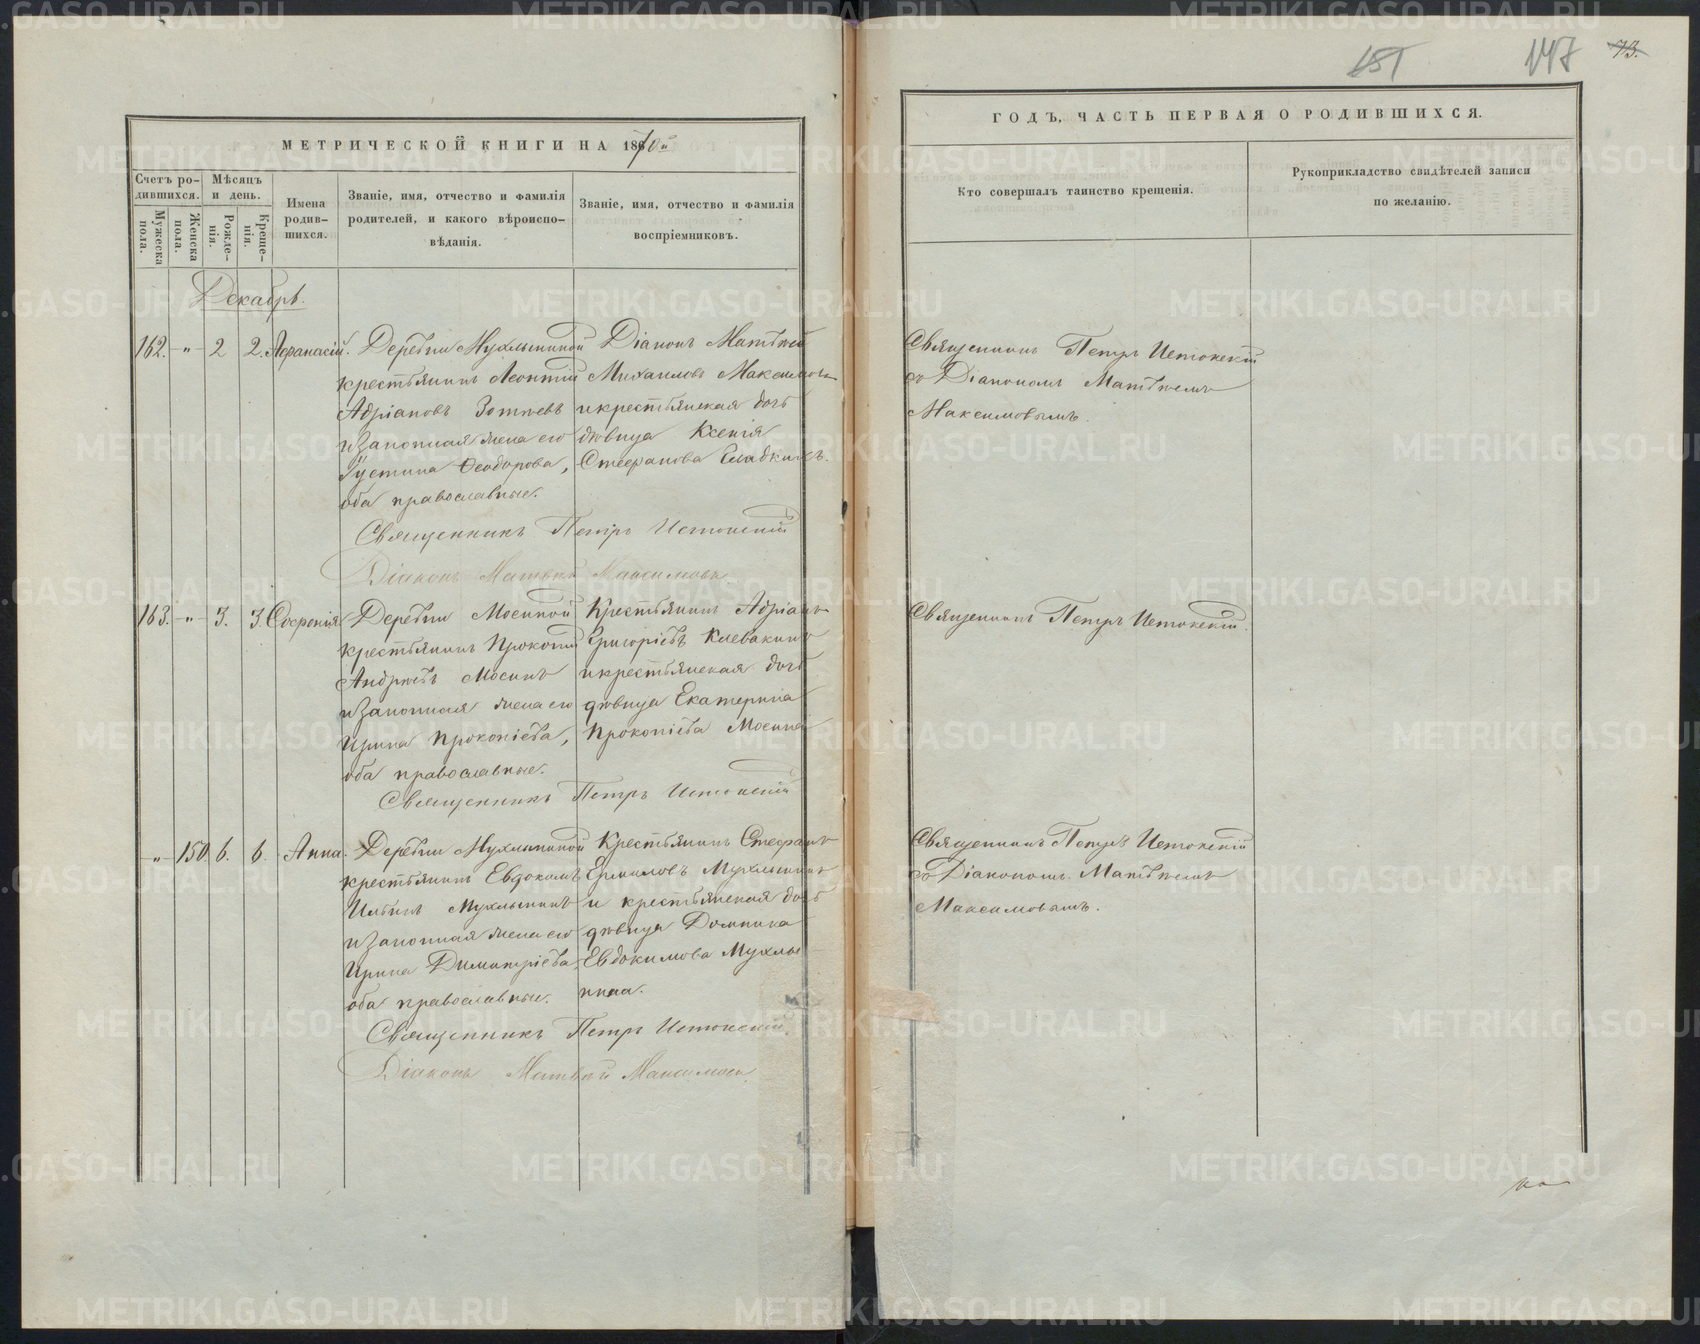 МЕТРИЧЕСКОЙ КНИГИ НА 1870й
Счетъ ро-
дившихся.
Мѣсяцъ
и день.
Мужеска
пола.
Женска
пола.
Рожде-
нія.
Креще-
нія.
Имена
родив-
шихся.
Званіе, имя, отчество и фамилія
родителей, и какого вѣроиспо-
вѣданія.
Званіе, имя, отчество и фамилія
воспріемниковъ.
Декабрь.
162. -„- 2 2. Аѳанасій.
Деревни Мухлыниной
крестьянинъ Леонтій
Адріановъ Зотѣевъ
и законная жена его
Іустина Ѳеодорова,
оба православные.
Діаконъ Матѳей
Михаиловъ Максимовъ
и крестьянская дочь
дѣвица Ксенія
Стефанова
Священникъ Петръ Истокскій
Діаконъ Матвей Максимовъ
163. -„- 3. 3. Софронія
Деревни Мосиной
крестьянинъ Прокопій
Андреевъ Мосинъ
и законная жена его
Ирина Прокопіева,
оба православные.
Крестьянинъ Адріанъ
Григоріевъ Клевакинъ
и крестьянская дочь
дѣвица Екатерина
Прокопіева Мосина
Священникъ Петръ Истокскій
-„- 150 6. 6. Анна.
Деревни Мухлыниной
крестьянинъ Евдокимъ
Ильинъ Мухлынинъ
и законная жена его
Ирина Димитріева,
оба православные.
Крестьянинъ Стефанъ
Ермиловъ Мухлынинъ
и крестьянская дочь
дѣвица Домника
Евдокимова Мухлы-
нина.
Священникъ Петръ Истокскій.
Діаконъ Матвей Максимовъ
147 73.
ГОДЪ, ЧАСТЬ ПЕРВАЯ О РОДИВШИХСЯ.
Кто совершалъ таинство крещенія.
Рукоприкладство свидѣтелей записи
по желанію.
Священникъ Петръ Истокскій
съ Діакономъ Матвѣемъ
Максимовымъ.
Священникъ Петръ Истокскій.
Священникъ Петръ Истокскій
съ Діакономъ Матвѣемъ
Максимовымъ.
METRIKI.GASO-URAL.RU